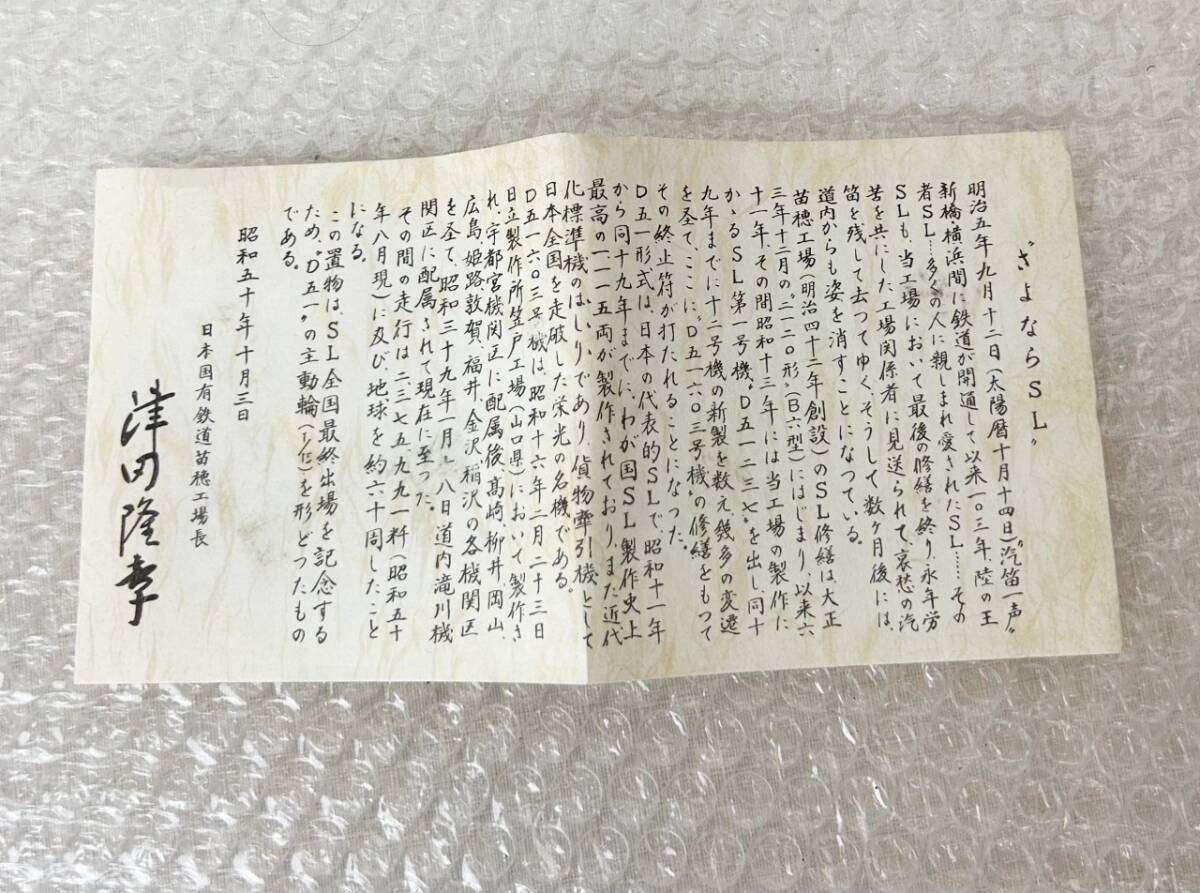 〝さよならSL〟
明治五年九月十二日(太陽暦十月十四日)〝汽笛一声〟
新橋横浜間に鉄道が開通して以来一〇三年、陸の王
者SL……多くの人に親しまれ愛されたSL……その
SLも、当工場において最後の修繕を終り、永年労
苦を共にした工場関係者に見送られて、哀愁の汽
笛を、残して去つてゆく、そうして数ヶ月後には、
道内からも姿を消すことになつている。
苗穂工場(明治四十二年創設)のSL修繕は、大正
三年十二月の〝二一二〇形〟(B6型)にはじまり、以来六
十一年、その間昭和十三年には当工場の製作に
かゝるSL第一号機〝D五一二三七〟を出し、同十
九年までに十二号機の新製を数え、幾多の変遷
を圣て、こゝに〝D五一六〇三号機〟の修繕をもつて
その終止符が打たれることになつた。
D五一形式は、日本の代表的SLで、昭和十一年
から同十九年までに、わが国SL製作史上
最高の一一一五両が製作されており、また近代
化標準機のはしりであり、貨物牽引機として
日本全国を走破した栄光の名機である。
D五一六〇三号機は、昭和十六年二月二十三日
日立製作所笠戸工場(山口県)において製作さ
れ、宇都宮機関区に配属後、高崎、柳井、岡山、
広島、姫路、敦賀、福井、金沢、稲沢の各機関区
を圣て、昭和三十九年一月二八日道内滝川機
関区に配属されて現在に至つた。
その間の走行は二三七五九九一粁(昭和五十
年八月現)に及び、地球を約六十周したこと
になる。
この置物は、SL全国最終出場を記念する
ため、〝D五一〟の主動輪(1/15)を形どつたもの
である。
昭和五十年十月三日
日本国有鉄道苗穂工場長
津田隆孝